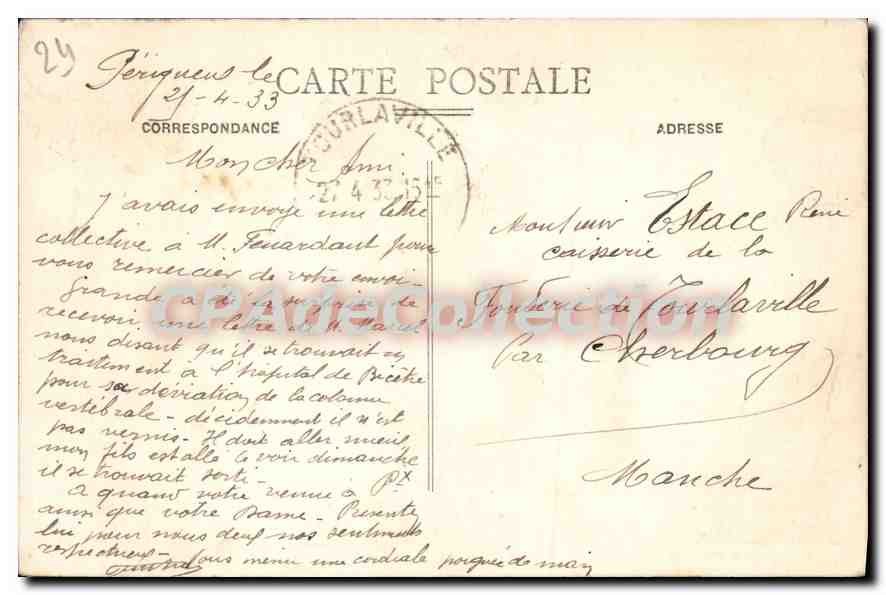 24
Périgueux le
CARTE POSTALE
21-4-33
CORRESPONDANCE
ADRESSE
TOURLAVILLE
27 4 33 15
Mon cher Ami
J'avais envoyé une lettre
collective à M. Feuardant pour
vous remercier de votre envoi-
Grande a été la surprise de
recevoir une lettre de M. Marcel
nous disant qu'il se trouvait en
traitement à l'hôpital de Bicêtre
pour sa déviation de la colonne
vertébrale - décidemment il n'est
pas vernis - Il doit aller mieux
mon fils est allé le voir dimanche
il se trouvait sorti - Px
a quand votre venue à
ainsi que votre Dame - Présentez
lui pour nous deux nos sentiments
respectueux -
Vous une cordiale poignée de main
Monsieur Estace René
caisserie de la
Fonderie de Tourlaville
Par Cherbourg
Manche
CPArteCollection